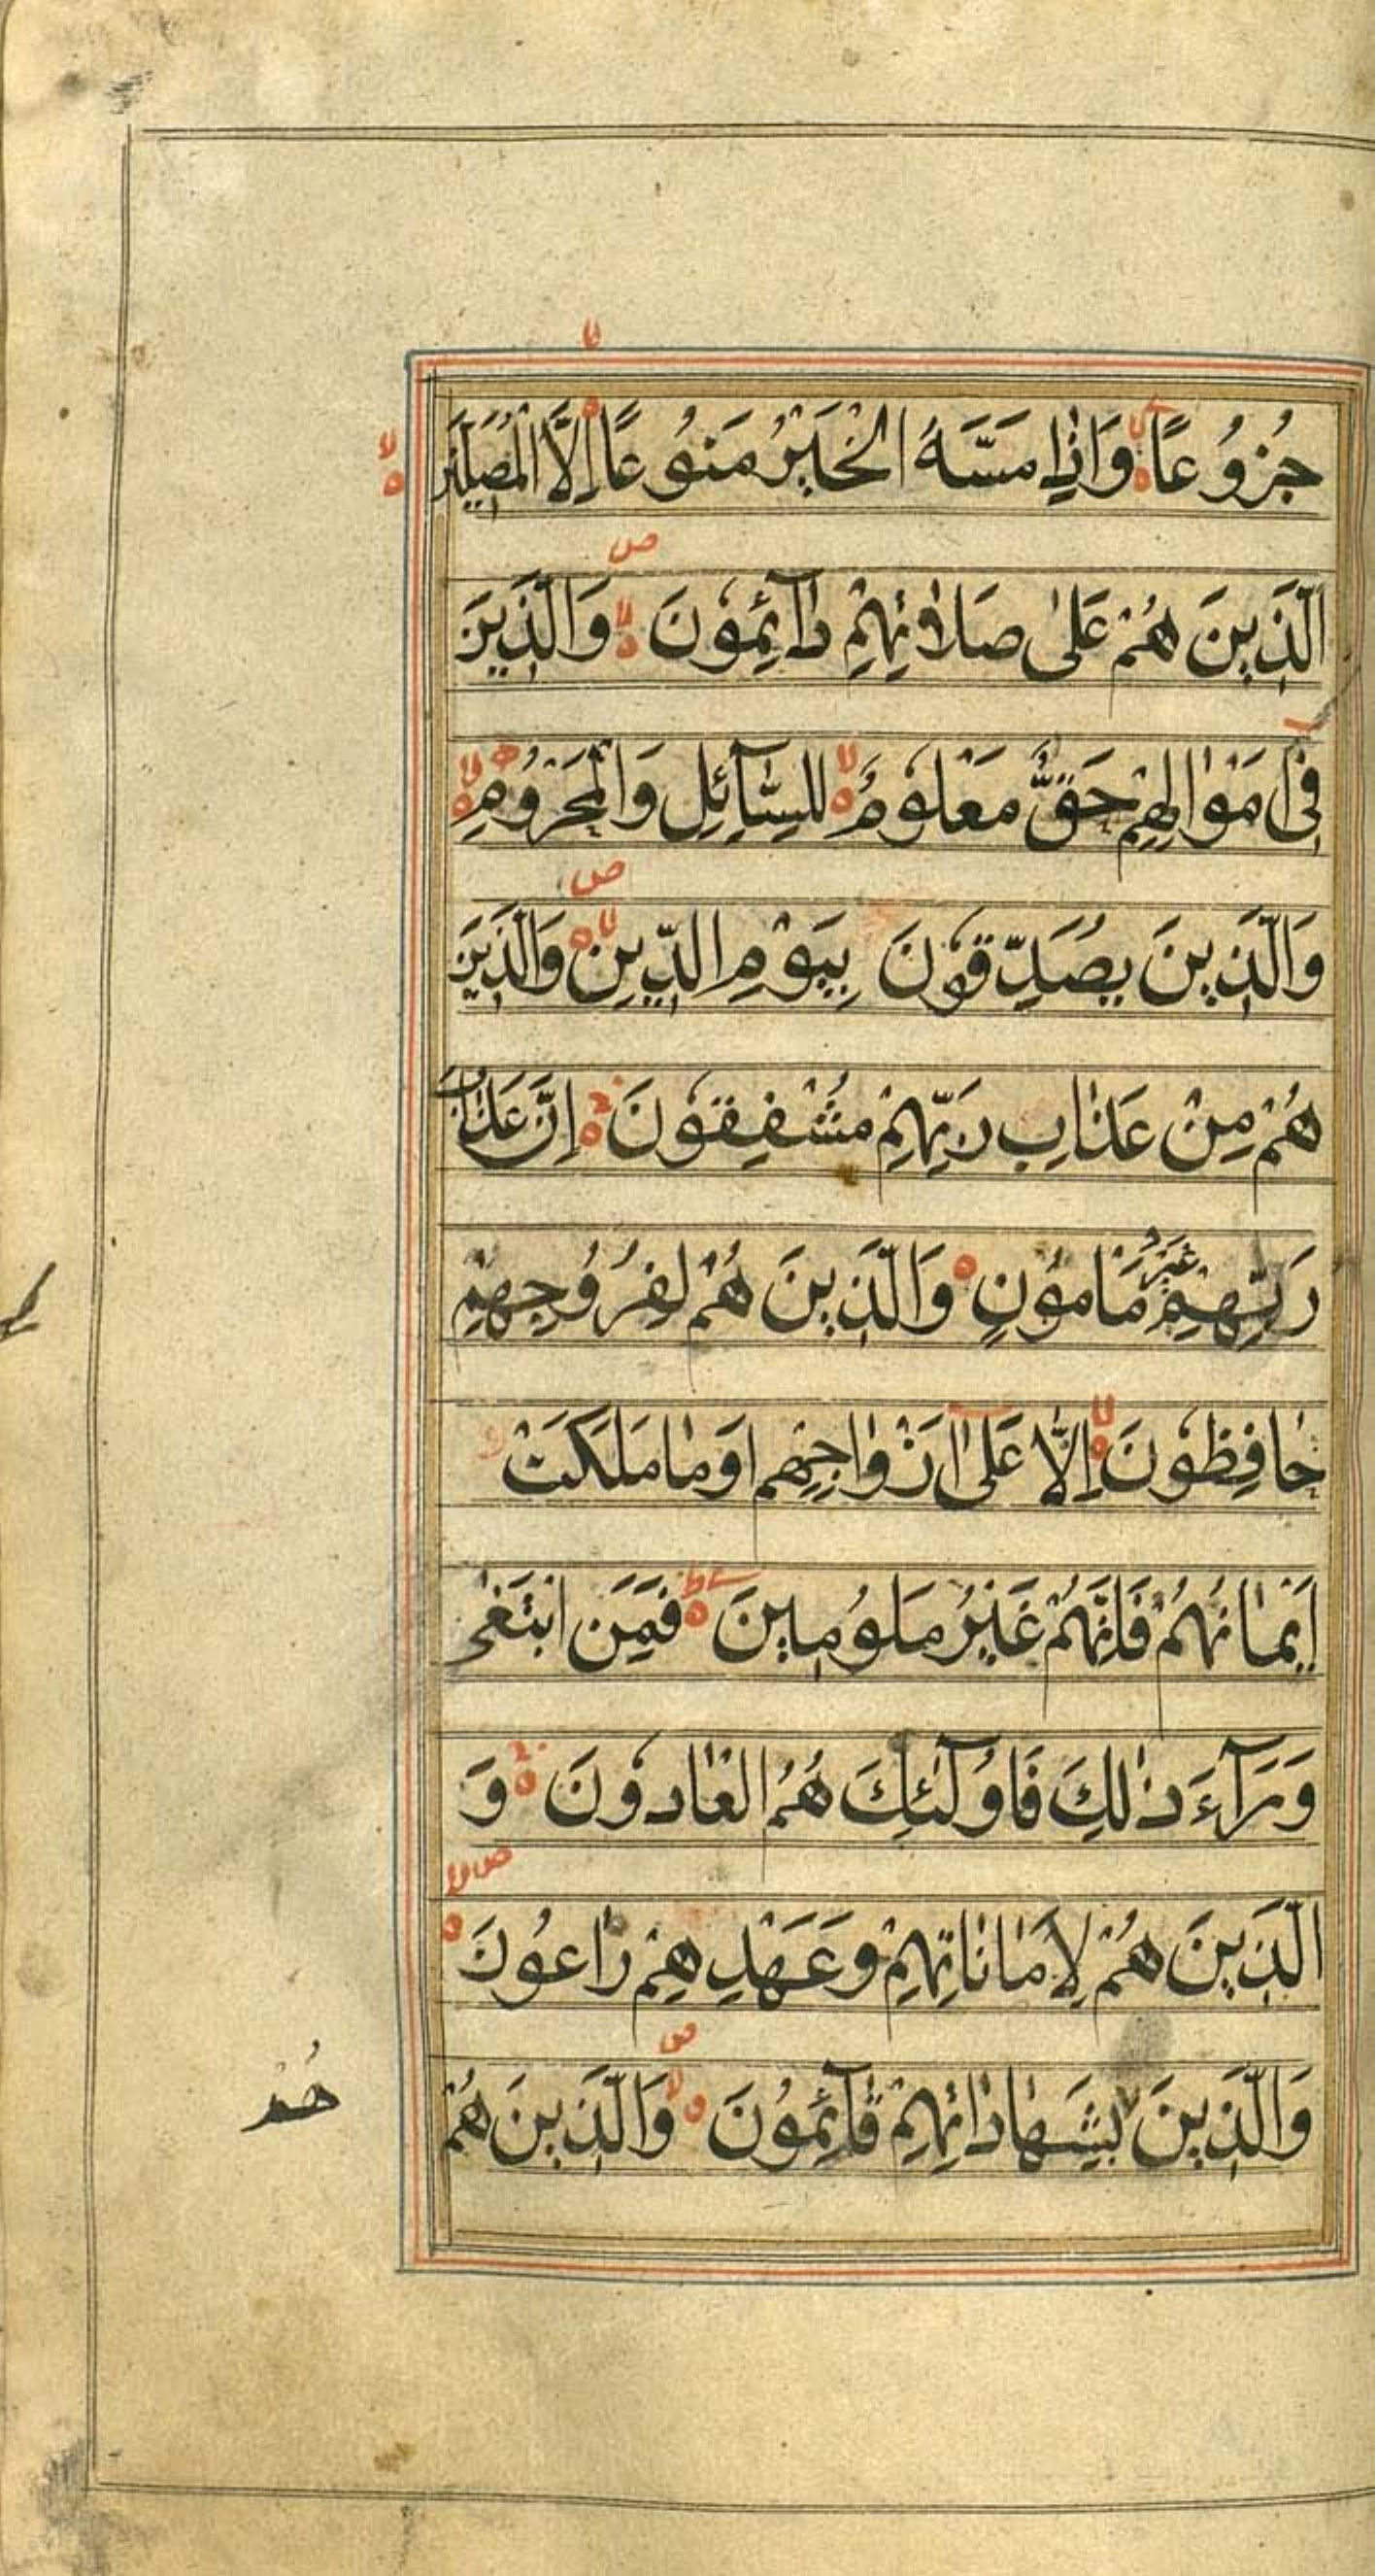 جُزُوعًا وَاِذٰا مَسَّهُ الْخَيْرُ مَنُوعًا اِلَّا الْمُصَلّينَ
اَلَّذينَ هُمْ عَلىٰ صَلَاتِهِمْ دٰآئِمُونَ وَالَّذينَ
فى اَمْوٰالِهِمْ حَقٌّ مَعْلُومٌ لِلسّٰآئِلِ وَالْمَحْرُومِ
وَالَّذينَ يُصَدِّقُونَ بِيَوْمِ الدّينِ وَالَّذينَ
هُمْ مِنْ عَذٰابِ رَبِّهِمْ مُشْفِقُونَ اِنَّ عَذٰابَ
رَبِّهِمْ غَيْرُ مَأمُونٍ وَالَّذينَ هُمْ لِفُرُوجِهِمْ
حٰافِظُونَ اِلّٰا عَلىٰ اَزْوٰاجِهِم اَوْ مٰا مَلَكَتْ
اَيْمٰانُهُمْ فَاِنَّهُمْ غَيْرُ مَلُومينَ فَمَنِ ابْتَغىٰ
وَرَآءَ ذٰلِكَ فَاُولٰٓئِكَ هُمُ الْعٰادُونَ وَ
الَّذينَ هُمْ لِاَمٰانٰاتِهِمْ وَعَهْدِهِمْ رٰاعُونَ
وَالَّذينَ بِشَهٰادٰاتِهِمْ قٰآئِمُونَ وَالَّذينَ هُمْ
هُمْ